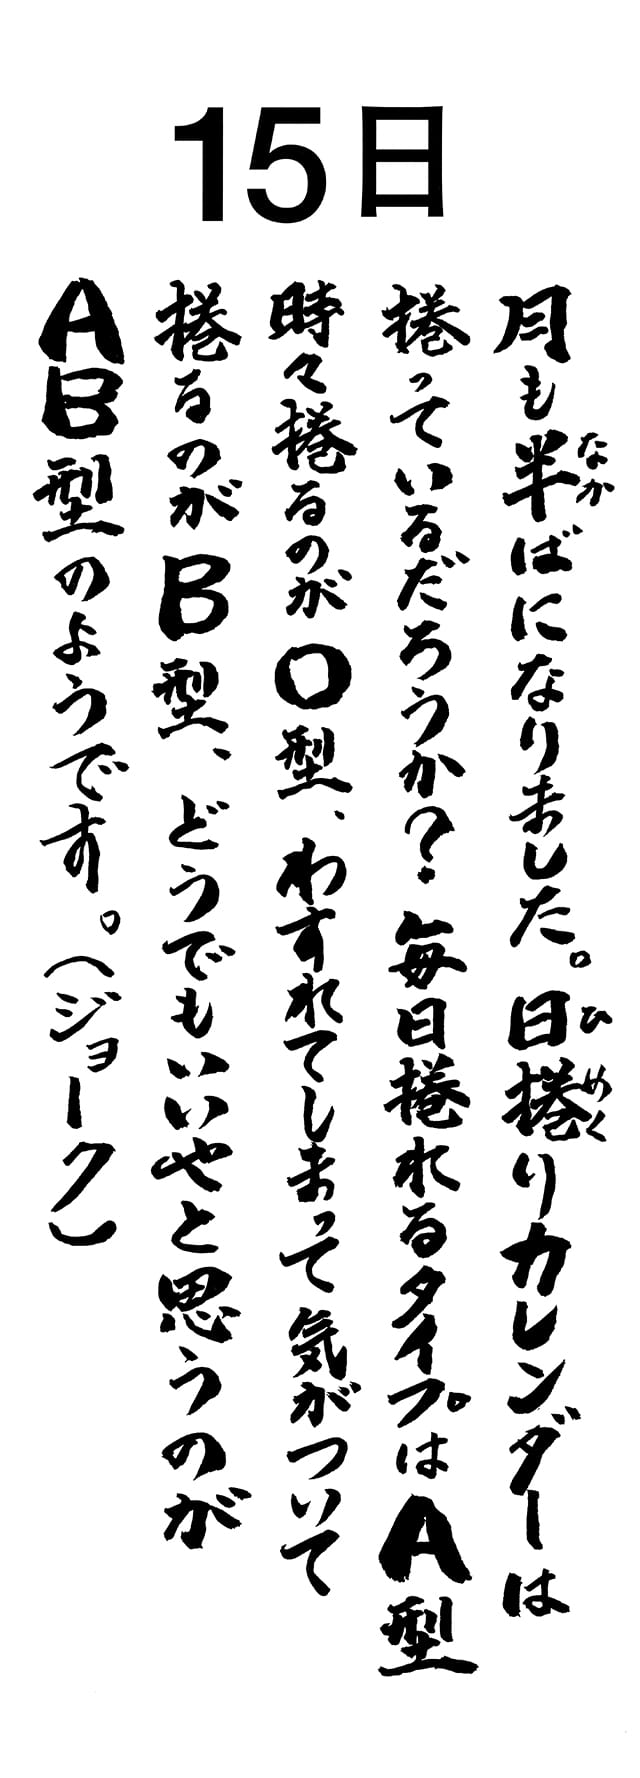 15日
月も半ばになりました。日捲りカレンダーは
なか
ひめく
捲っているだろうか?毎日捲れるタイプはA型
時々捲るのがO型、わすれてしまって気がついて
捲るのがB型、どうでもいいやと思うのが
AB型のようです。(ジョーク)